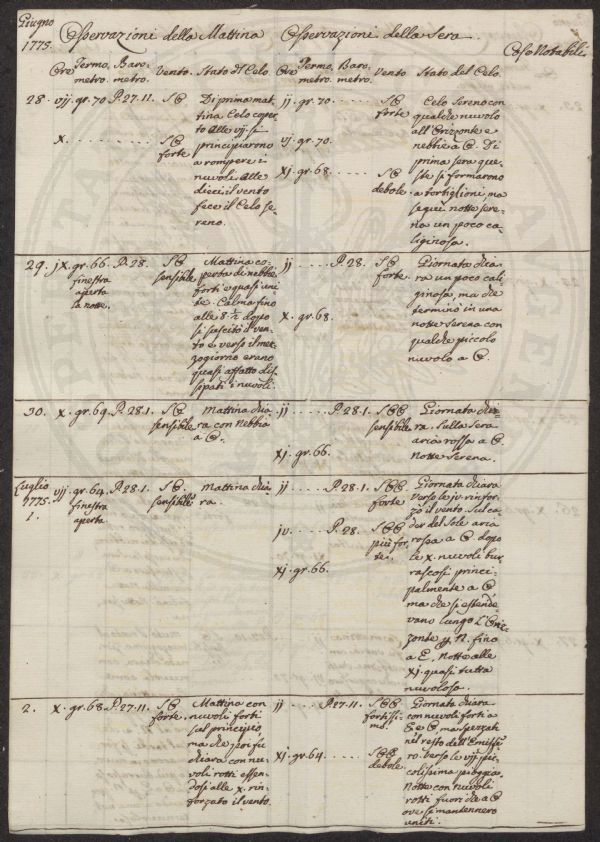 Giugno 1775.
Osservazioni della Mattina
Osservazioni della Sera
Cose Notabili
Ore Termo. metro. Baro. metro. Vento. Stato del Celo
Ore Termo. metro. Baro. metro. Vento Stato del Celo.
28. vij. gr. 70 P. 27. 11. S
Di prima mat-
tina Celo coper-
to Alle vij. si
principiarono
a rompere i
nuvoli Alle
dieci il vento
fece il Celo se-
reno.
x. forte
ij. gr. 70. forte
Celo Sereno con
qualche nuvolo
all'Orizzonte e
nebbie a
Di
prima sera que-
ste si formarono
a tortiglioni, ma
seguì notte sere-
na un poco ca-
liginosa.
vj. gr. 70.
xj. gr. 68. debole.
29. jx. gr. 66. P. 28. sensibile
finestra
aperta
la notte.
Mattina co-
perta di nebbie
forti e quasi uni-
te. Calma fino
alle 8 1/2 dopo
si suscitò il ven-
to e verso il mez-
zogiorno erano
quasi affatto dis-
sipati i nuvoli.
ij P. 28. forte.
Giornata chia-
ra un poco cali-
ginosa, ma che
terminò in una
notte serena con
qualche piccolo
nuvolo a
x. gr. 68.
30. x. gr. 69. P. 28. 1. sensibile
Mattina chia-
ra con Nebbia
a
ij P. 28. 1. sensibile
Giornata chia-
ra. Sulla Sera
aria rossa a
Notte Serena.
xj. gr. 66.
Luglio
1775.
1.
vij. gr. 64. P. 28. 1. sensibile
finestra
aperta
Mattina chia-
ra.
ij P. 28. 1. forte
Giornata chiara
Verso le iv rinfor-
zò il vento. Sul ca-
der del Sole aria
rossa a
dopo
le x. nuvoli bu-
rascosi princi-
palmente a
ma che si estende-
vano lungo l'Oriz-
zonte
N. fino
a E. Notte alle
xj. quasi tutta
nuvolosa.
iv. P. 28. più for-
te.
xj. gr. 66.
2. x. gr. 68. P. 27. 11. forte.
Mattina con
nuvoli forti
sul principio
ma che poi fu
chiara con nu-
voli rotti essen-
dosi alle x. rin-
forzato il vento.
ij P. 27. 11. fortissi-
mo.
Giornata chiara
con nuvoli forti a
ma spezzati
nel resto dell'Emisfe-
ro. verso le vij pic-
colissima pioggia.
Notte con nuvoli
rotti fuori che a
ove si mantennero
uniti.
xj. gr. 64. debole.